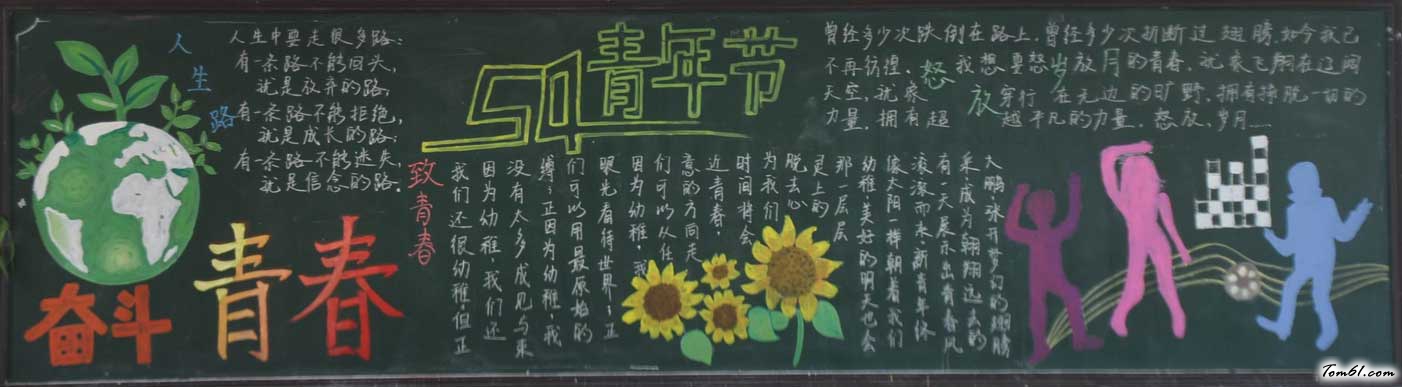 人生路
人生中要走很多路:
有一条路不能回头,
就是放弃的路;
有一条路不能拒绝,
就是成长的路;
有一条路不能迷失,
就是信念的路。
奋斗
青春
54青年节
致青春
我们还很幼稚但正
因为幼稚,我们还
没有太多成见与束
缚;正因为幼稚,我
们可以用最原始的
眼光看待世界;正
因为幼稚,我
们可以从任
意的方向走
近青春,
时间将会
为我们
脱去心
灵上的
那一层层
幼稚,美好的明天也会
像太阳一样朝着我们
滚滚而来,新青年休
有一天展示出青春风
采,成为翱翔远去的
大鹏,张开梦幻的翅膀
曾经多少次跌倒在路上,曾经多少次折断过翅膀如今我已
不再彷徨、我想要怒放岁月的青春,就象飞翔在辽阔
天空,就象穿行在无边的旷野,拥有挣脱一切的
力量,拥有超越平凡的力量,怒放,岁月……
Tom61.com